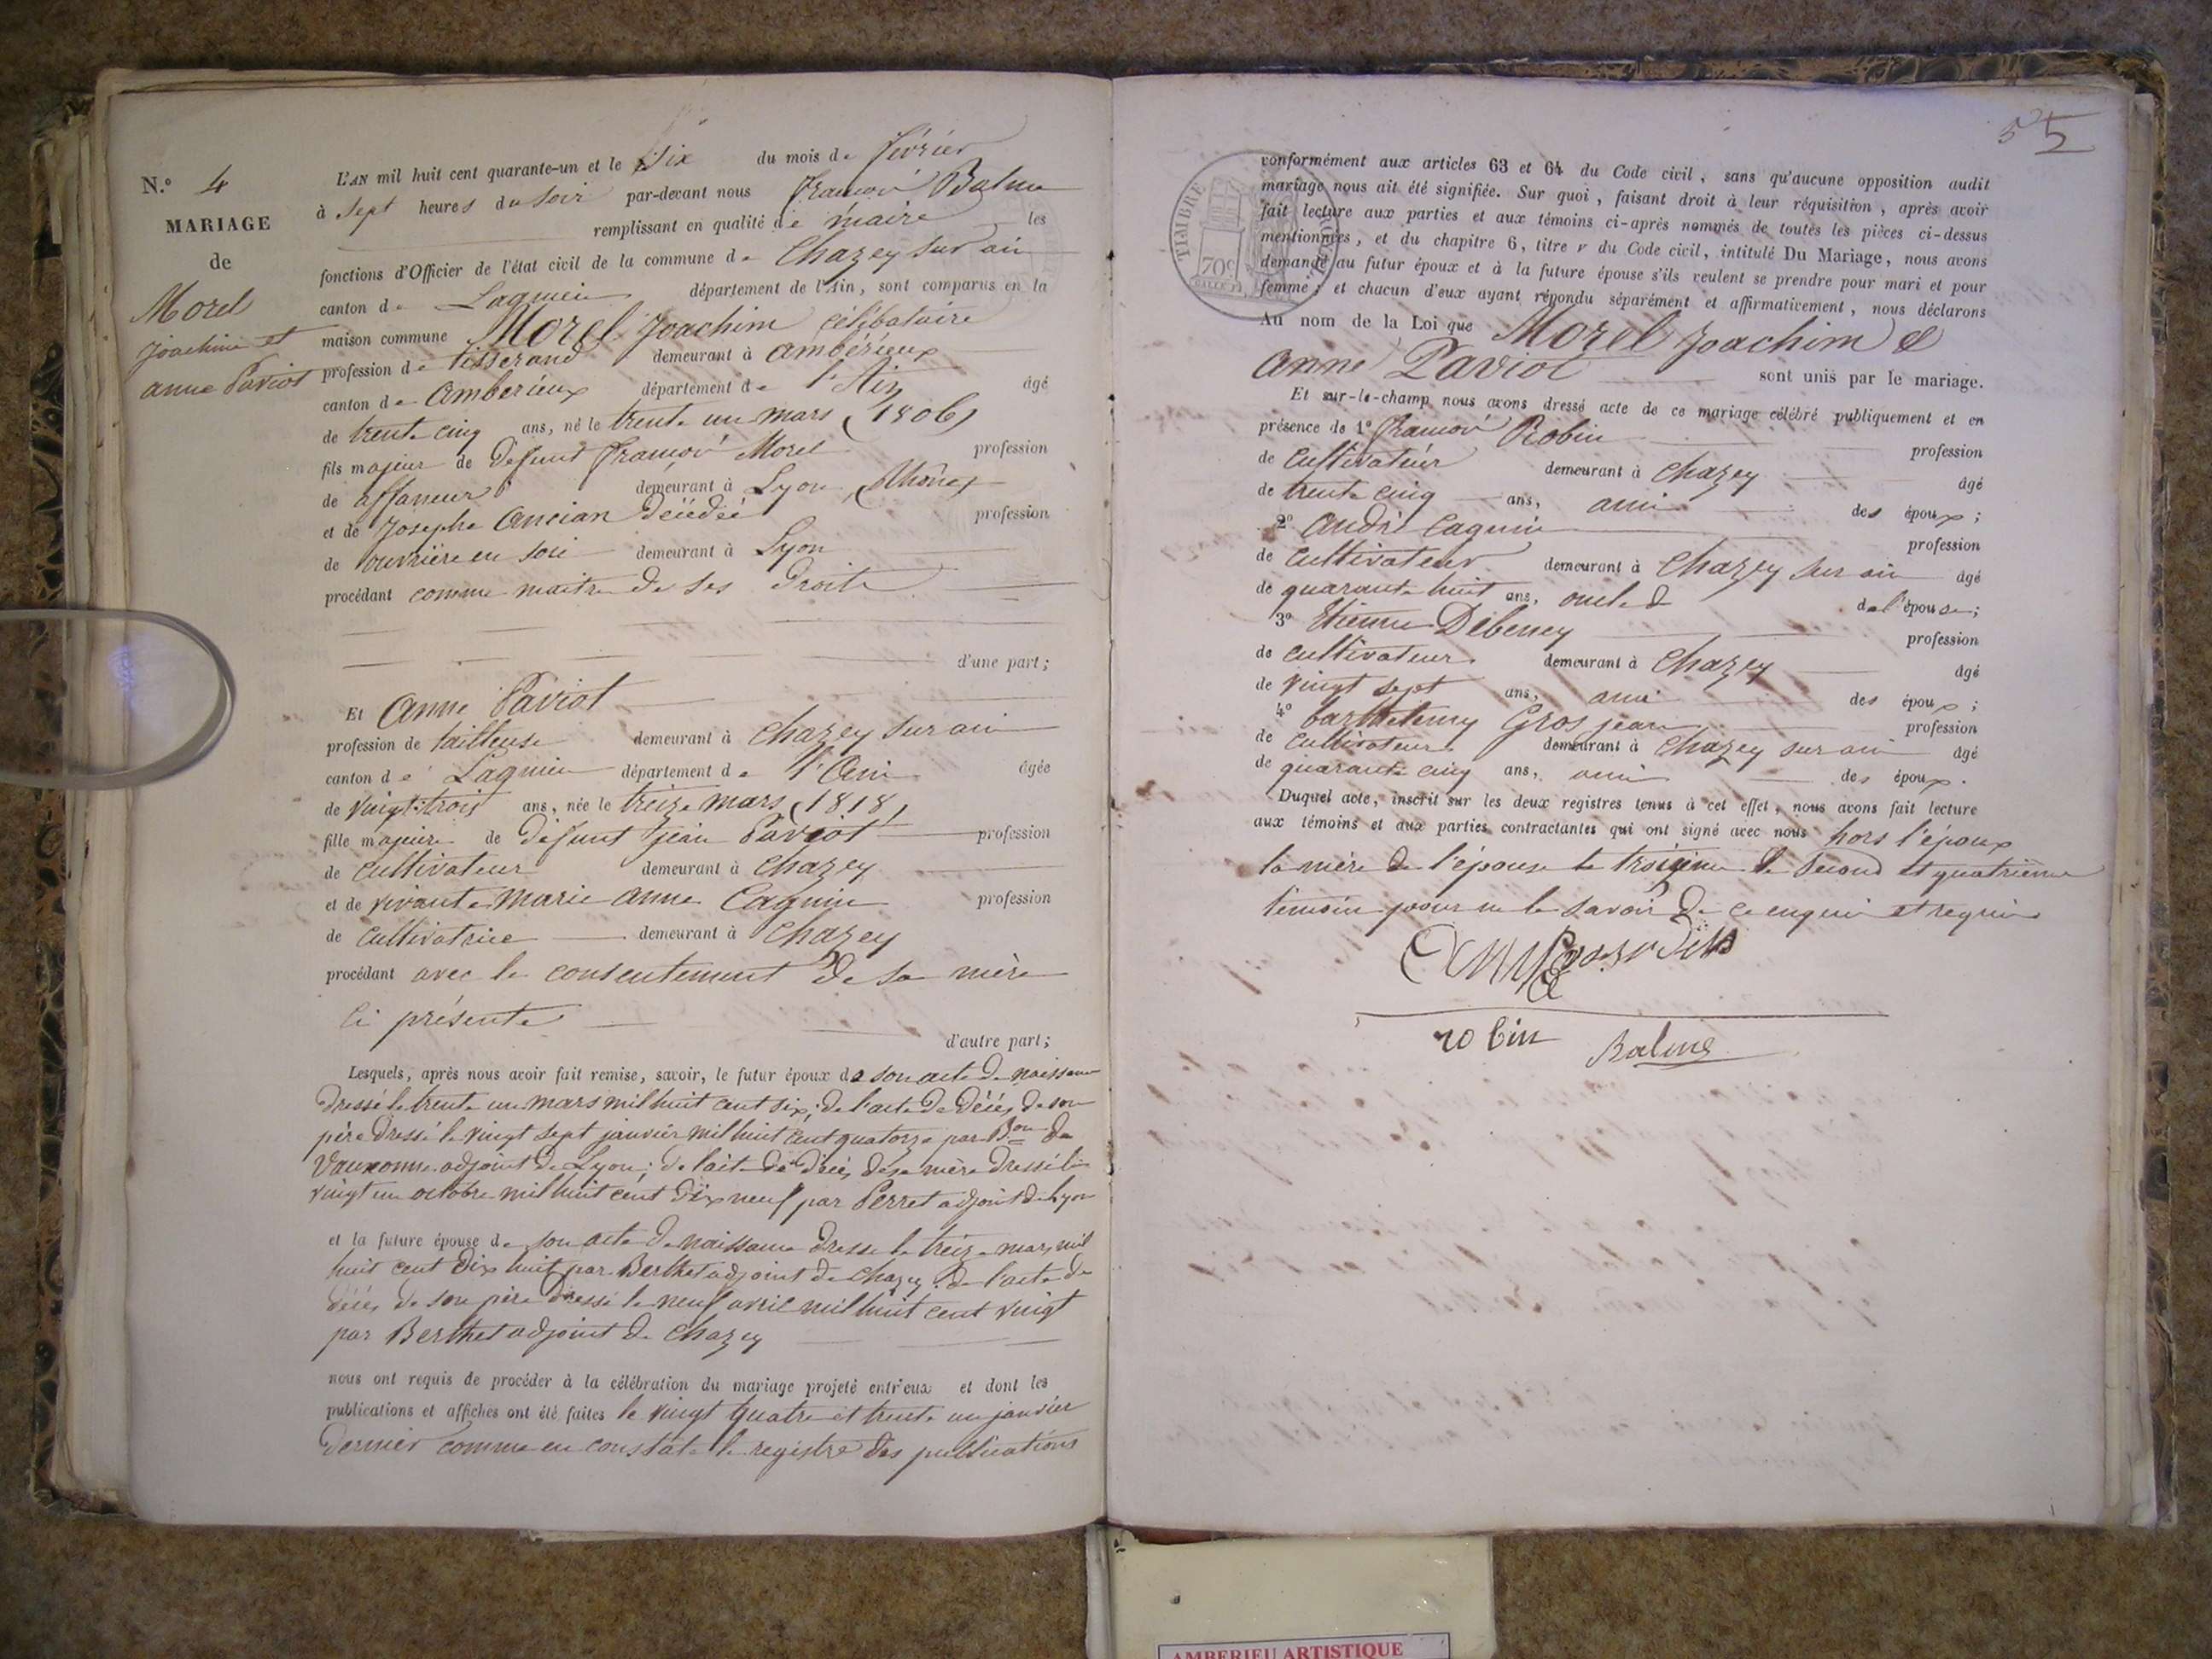 N.º 4
MARIAGE
de
Morel
Joachim et
anne Paviot
L'AN mil huit cent quarante-un et le Six du mois de février
à sept heures du soir par-devant nous françois Balme
remplissant en qualité de maire les
fonctions d'Officier de l'état civil de la commune de Chazey sur ain
canton de Lagnieu département de l'Ain, sont comparus en la
maison commune Morel Joachim célibataire
profession de tisserand demeurant à ambérieux
canton de amberieux département de l'Ain âgé
de trente cinq ans, né le trente un mars (1806)
fils majeur de défunt françois Morel profession
de affaneur demeurant à Lyon, (Rhône)
et de Josephe Ancian décédée profession
de ouvrière en soie demeurant à Lyon
procédant comme maitre de ses droits
d'une part;
Et Anne Paviot
profession de tailleuse demeurant à Chazey sur ain
canton de Lagnieu département de l'Ain âgée
de vingt-trois ans, née le treize mars (1818)
fille majeure de défunt jean Paviot profession
de cultivateur demeurant à Chazey
et de vivante marie anne Cagnin profession
de cultivatrice demeurant à Chazey
procédant avec le consentement de sa mère
ci présente
d'autre part;
Lesquels, après nous avoir fait remise, savoir, le futur époux de son acte de naissance
dressé le trente un mars mil huit cent six; de l'acte de décès de son
père dressé le vingt sept janvier mil huit cent quatorze par Bon de
Vauxonne adjoint de Lyon; de l'acte de décès de sa mère dressé le
vingt un octobre mil huit cent dix neuf par Perret adjoint de Lyon
et la future épouse de son acte de naissance dressé le treize mars mil
huit cent dix huit par Berthet adjoint de Chazey; de l'acte de
décès de son père dressé le neuf avril mil huit cent vingt
par Berthet adjoint de Chazey
nous ont requis de procéder à la célébration du mariage projeté entr'eux et dont les
publications et affiches ont été faites le vingt quatre et trente un janvier
dernier comme en constate le registre des publications
55
TIMBRE ROYAL
70c
conformément aux articles 63 et 64 du Code civil, sans qu'aucune opposition audit
mariage nous ait été signifiée. Sur quoi, faisant droit à leur réquisition, après avoir
fait lecture aux parties et aux témoins ci-après nommés de toutes les pièces ci-dessus
mentionnées, et du chapitre 6, titre v du Code civil, intitulé Du Mariage, nous avons
demandé au futur époux et à la future épouse s'ils veulent se prendre pour mari et pour
femme; et chacun d'eux ayant répondu séparément et affirmativement, nous déclarons
Au nom de la Loi que Morel Joachim &
anne Paviot sont unis par le mariage.
Et sur-le-champ nous avons dressé acte de ce mariage célébré publiquement et en
présence de 1º françois Robin profession
de cultivateur demeurant à Chazey âgé
de trente cinq ans, ami des époux;
2º André Cagnin profession
de cultivateur demeurant à Chazey sur ain âgé
de quarante huit ans, oncle de l'épouse;
3º Etienne Debeney profession
de cultivateur demeurant à Chazey âgé
de vingt sept ans, ami des époux;
4º barthelemy Gros jean profession
de cultivateur demeurant à Chazey sur ain âgé
de quarante cinq ans, ami des époux.
Duquel acte, inscrit sur les deux registres tenus à cet effet, nous avons fait lecture
aux témoins et aux parties contractantes qui ont signé avec nous hors l'époux
la mère de l'épouse le troisième le second et quatrième
témoin pour ne le savoir de ce enquis et requis
robin Balme
AMBERIEU ARTISTIQUE